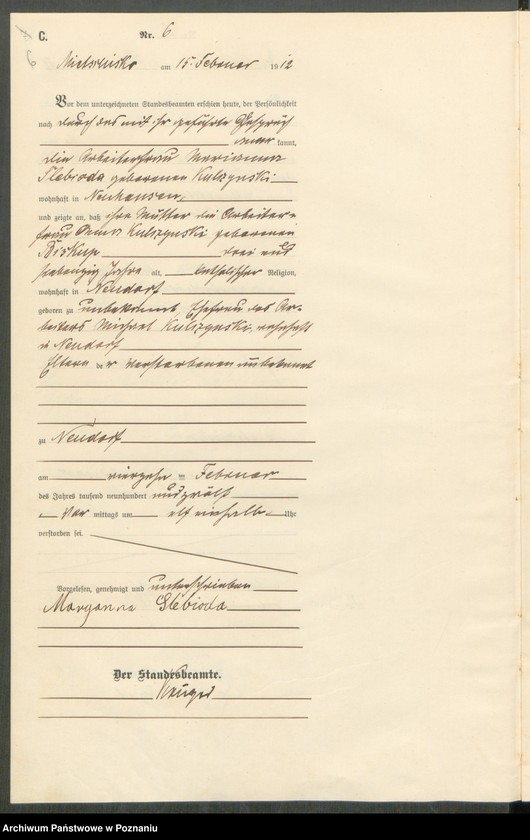 C.
Nr. 6
6
am 15. Februar 1912
Vor dem unterzeichneten Standesbeamten erschien heute, der Persönlichkeit
nach durch das mit ihr geführte Gespräch
kannt,
die Arbeiterfrau Marianna
Glebioda geborenen Kulczynski
wohnhaft in Neuhausen,
und zeigte an, daß ihre Mutter die Arbeiter-
frau Kulczynski geborenen
Biskup drei und
siebenzig Jahre alt, katholischer Religion,
wohnhaft in Neudorf
geboren zu unbekannt Ehefrau des Ar-
beiters Michael Kulczynski, wohnhaft
in Neudorf
Eltern der verstorbenen unbekannt
zu Neudorf
am vierzehn ten Februar
des Jahres tausend neunhundert und zwölf
Vor mittags um elf einhalb Uhr
verstorben sei.
Vorgelesen, genehmigt und unterschrieben
Maryanna Glebioda
Der Standesbeamte.
Krüger
Archiwum Państwowe w Poznaniu